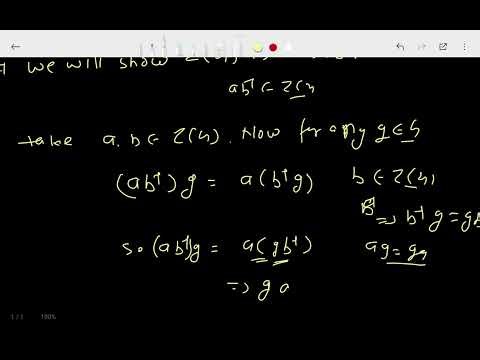 we will show Z(G)
ab⁻¹ ∈ Z(G)
take a, b ∈ Z(G). Now for any g ∈ G
(ab⁻¹) g = a(b⁻¹g) b ∈ Z(G)
⇒ b⁻¹ g = g
so (ab⁻¹)g = a(gb⁻¹) ag = ga
⇒ g a
1 / 1 180%